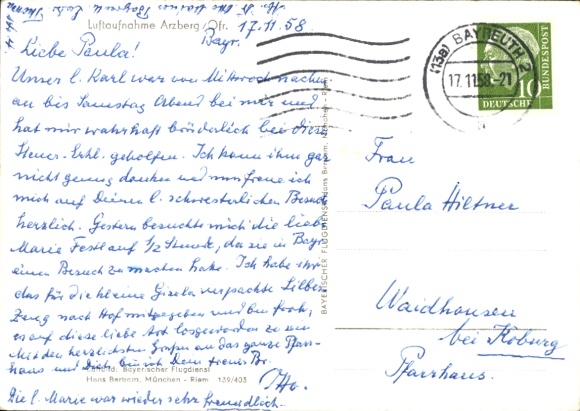 Luftaufnahme Arzberg/Ofr. 17.11.58
Bayr.
Liebe Paula!
Unser l. Karl war von Mittwoch nachm.
an bis Samstag Abend bei mir und
hat mir wahrhaft brüderlich bei diese
Steuer-Erkl. geholfen. Ich kann ihm gar
nicht genug danken und nun freue ich
mich auf Deinen l. schwesterlichen Besuch
herzlich. Gestern besuchte mich die liebe
Marie Festl auf 1/2 Stunde, da sie in Bayr.
einen Besuch zu machen hatte. Ich habe ihr
das für die kleine Gisela verpackte Silber
Zeug nach Hof mitgegeben und bin froh,
es auf diese liebe Art losgeworden zu sein
Mit den herzlichsten Grüßen an das ganze Pfarr-
haus und Dich bin ich Dein treues Br.
Die l. Marie war wieder sehr freundlich.
Bayerischer Flugdienst
Hans Bertram, München - Riem 139/403
BAYERISCHER FLUGDIENST Hans Bertram, München - Riem
(13a) BAYREUTH 2
17.11.58-21
10
DEUTSCHE
BUNDESPOST
Frau
Paula Hiltner
Waidhausen
bei Koburg
Pfarrhaus.